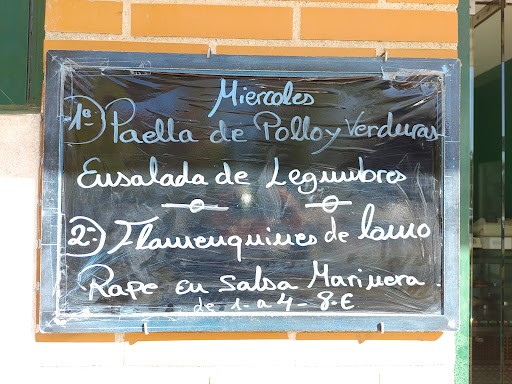 Miercoles
1º- Paella de Pollo y Verduras
Ensalada de Legumbres
2º- Flamenquines de lomo
Rape en salsa Marinera
de 1 - a 4 - 8 - €